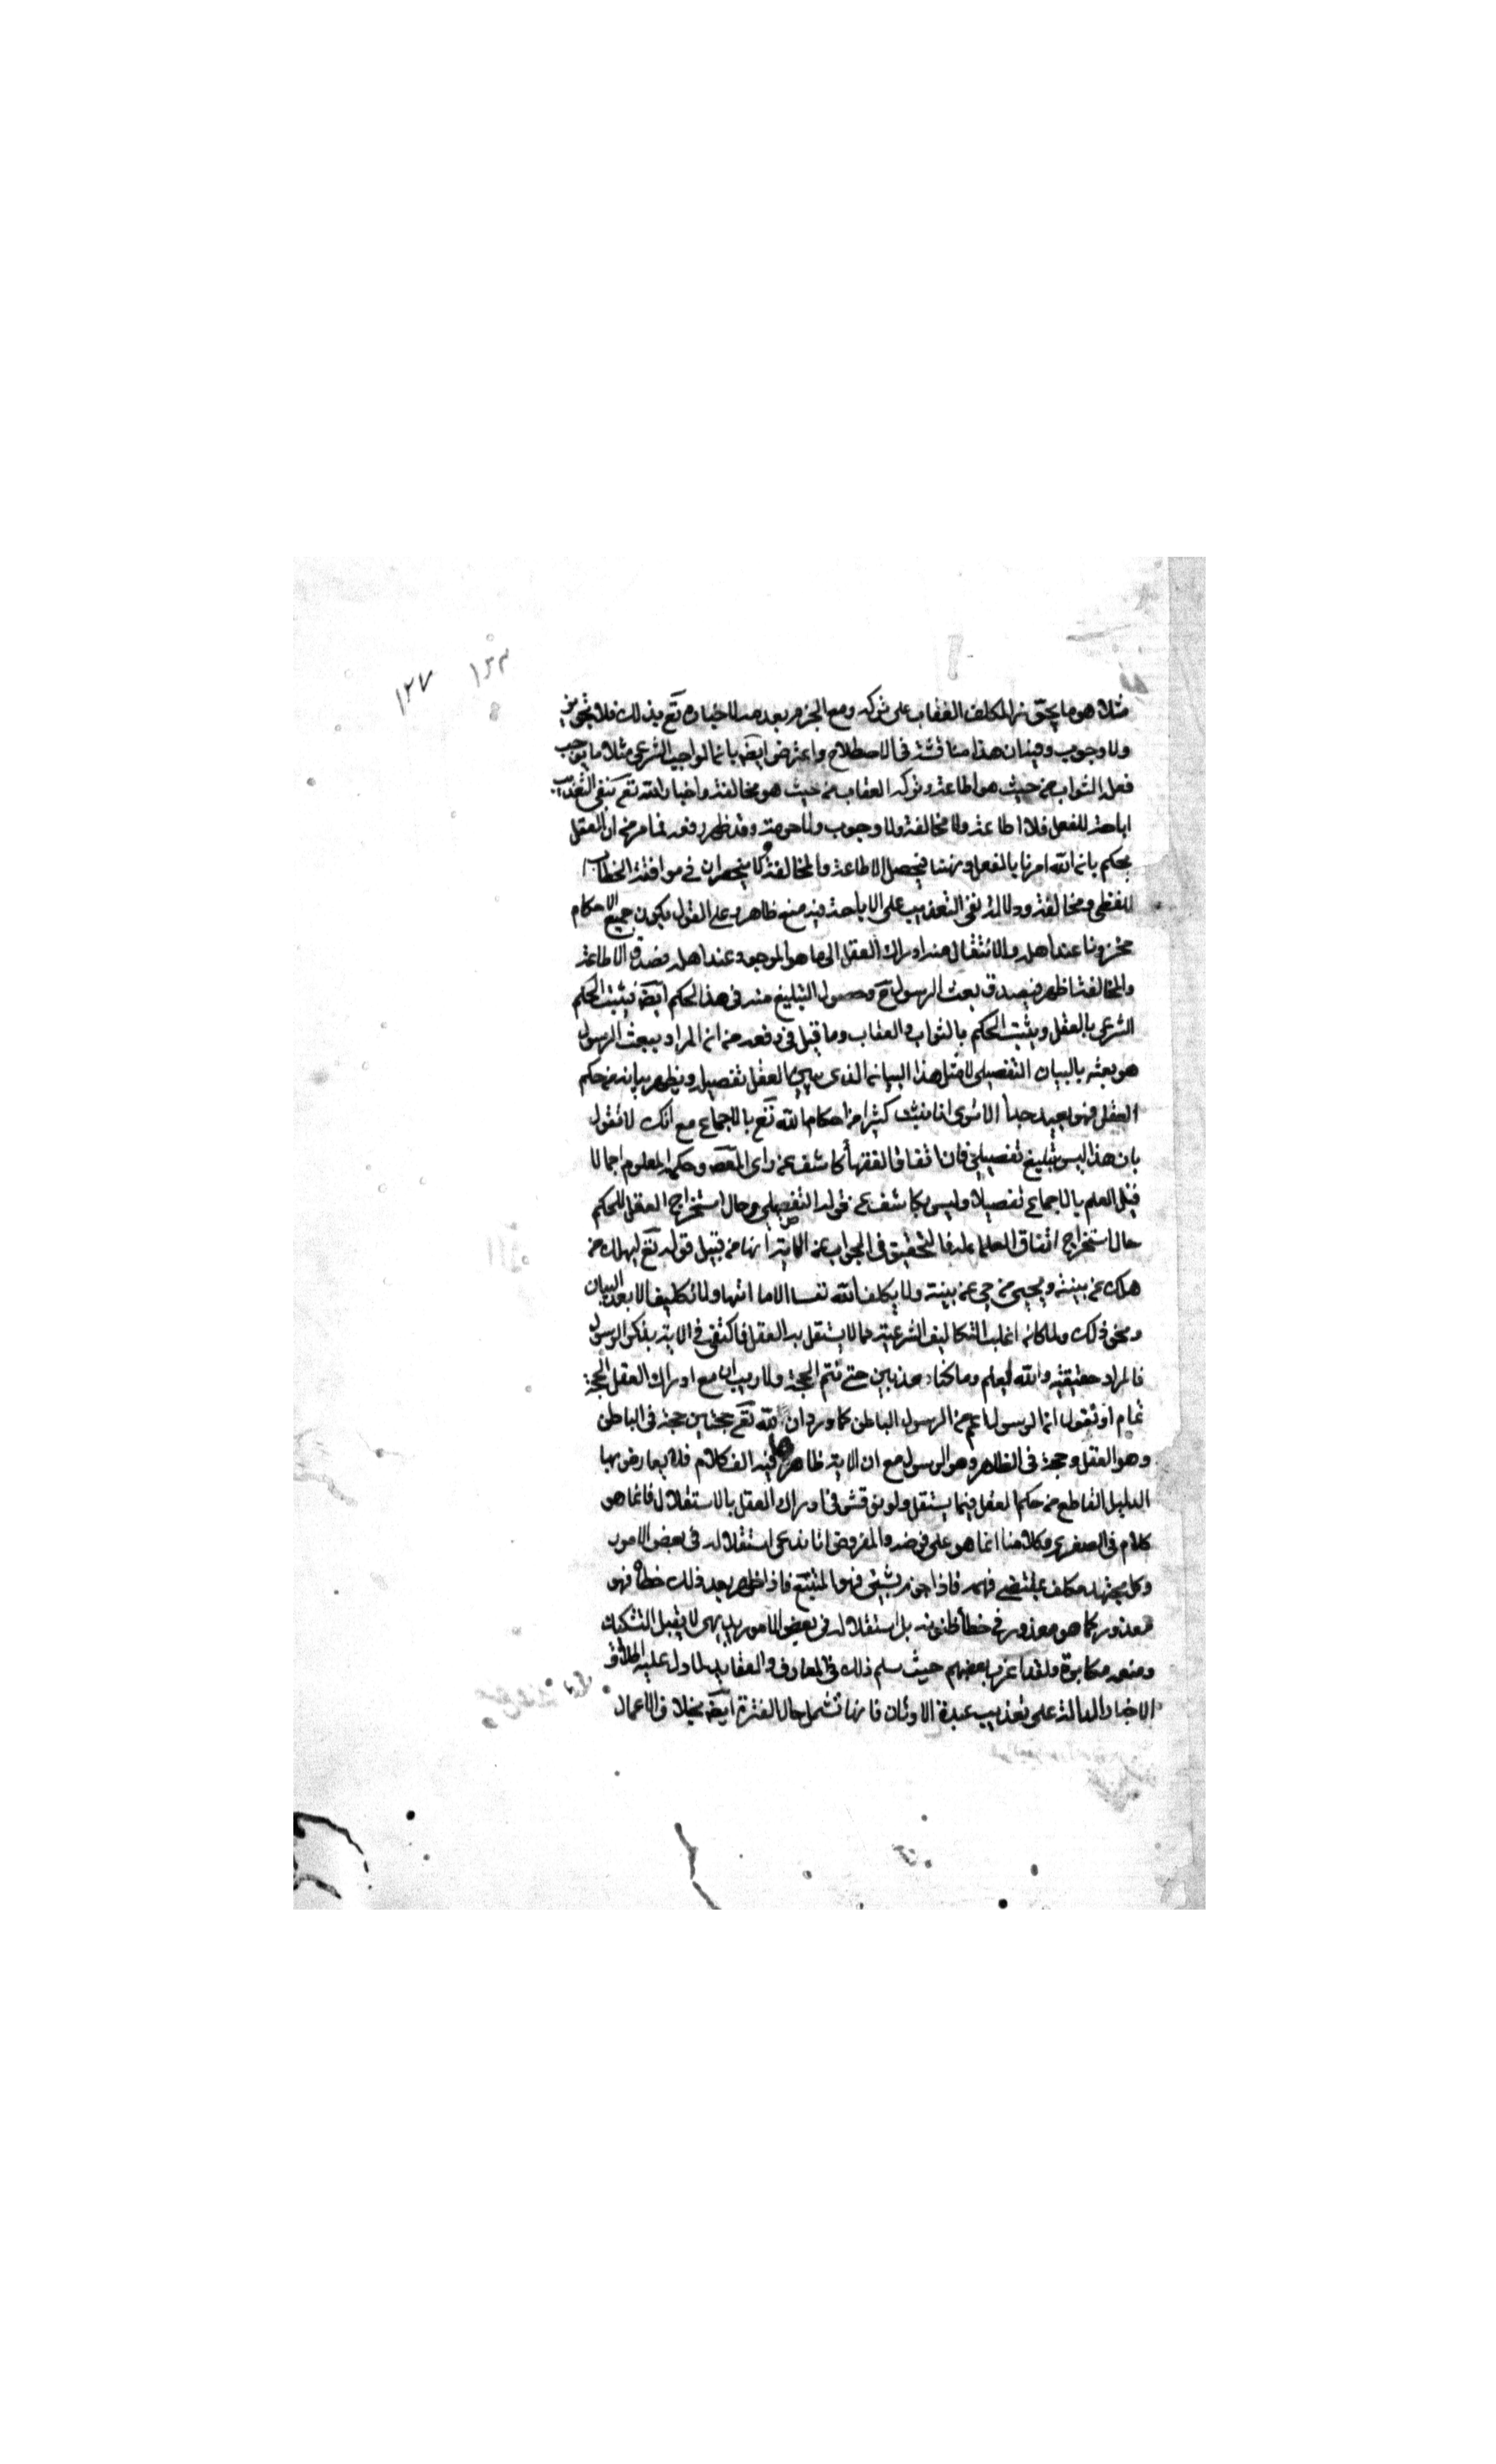 ١٢٧ ١٣٢
مثلا هو ما يجوز المكلف العقاب على تركه ومع الجزم بعدمه لاخباره تع بذلك فلا يجوز
ولا وجوب وفيه ان هذا مناقشة في الاصطلاح واعترض ايضا بان الواجب الشرعي مثلا ما يوجب
فعله الثواب من حيث هو اطاعة وتركه العقاب من حيث هو مخالفة واخبار الله تع بنفي التعذيب
اباحة للفعل فلا اطاعة ولا مخالفة ولا وجوب ولا حرمة وقد ظهر دفعه مما مر من ان العقل
يحكم بان الله امرنا بالفعل ونهينا فيحصل الاطاعة والمخالفة كما ينحصران في موافقة الخطاب
اللفظي ومخالفته ودلالة نفي التعذيب على الاباحة فيه منع ظاهر وعلى القول بكون جميع الاحكام
مخزونا عند اهله والانتقال من ادراك العقل الى ما هو الموجود عند اهله فصدق الاطاعة
والمخالفة اظهر فيصدق بعث الرسول ص وحصول التبليغ منه في هذا الحكم ايضا فيثبت الحكم
الشرعي بالعقل ويثبت الحكم بالثواب والعقاب وما قيل في دفعه من ان المراد ببعث الرسول
هو بعثه بالبيان التفصيلي لا مثل هذا البيان الذي العقل تفصيله ويظهر بيانه من حكم
العقل فهو بعيد جدا الا ترى انا نثبت كثيرا من احكام الله تع بالاجماع مع انك لا تقول
بان هذا ليس بتبليغ تفصيلي فان اتفاق الفقهاء كاشف عن راي المعصوم وحكمه المعلوم اجمالا
قبل العلم بالاجماع تفصيلا وليس بكاشف عن قوله التفصيلي وحال استخراج العقل للحكم
حال استخراج اتفاق العلماء له فالتحقيق في الجواب عن الاية انها من قبيل قوله تع ليهلك من
هلك عن بينة ويحيى من حي عن بينة ولا يكلف الله نفسا الا ما اتيها ولا تكليف الا بعد البيان
ونحو ذلك ولما كان اغلب التكاليف الشرعية مما لا يستقل به العقل فاكتفى في الاية بذكر الرسول
فالمراد حقيقة والله يعلم وما كنا معذبين حتى تتم الحجة ولا ريب ان مع ادراك العقل الحجة
تمام او نقول ان الرسول اعم من الرسول الباطن كما ورد ان لله تع حجتين حجة في الباطن
وهو العقل وحجة في الظاهر وهو الرسول مع ان الاية ظاهر فيه الف كلام فلا يعارض بها
الدليل القاطع من حكم العقل فيما يستقل ولو نوقش في ادراك العقل بالاستقلال فانما هو
كلام في الصغرى وكلامنا انما هو على فرضه والمفروض انا ندعي استقلاله في بعض الامور
وكل مجتهد مكلف بمقتضى فهمه فاذا جزم بشيئ فهو المتبع فاذا ظهر بعد ذلك خطاه فهو
معذور كما هو معذور في خطأ ظنونه بل استقلاله في بعض الامور بديهي لا يقبل التشكيك
ومنعه مكابرة ولقد اغرب بعضهم حيث سلم ذلك في المعارف والعقايد لما دل عليه اطلاق
الاخبار الدالة على تعذيب عبدة الاوثان فانها تشمل حال الفترة ايضا بخلاف الاعمال